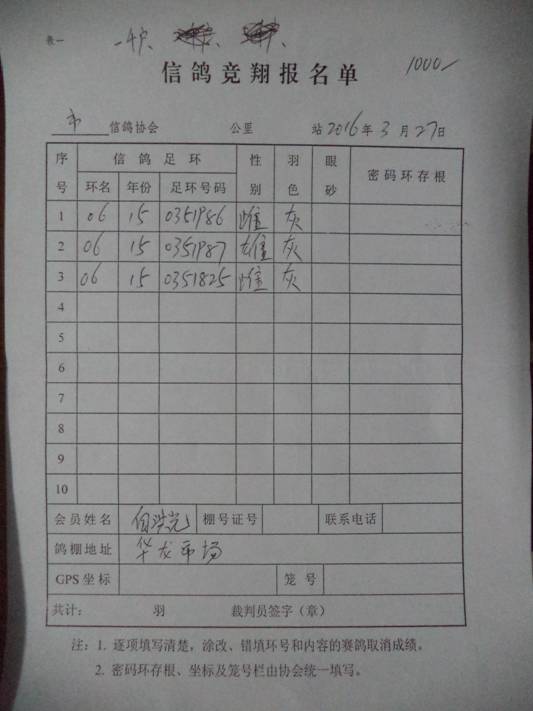 表一
信鸽竞翔报名单
1000/
市 信鸽协会 公里 站 2016年3月27日
序号 信鸽足环 性别 羽色 眼砂 密码环存根
环名 年份 足环号码
1 06 15 0351986 雌 灰
2 06 15 0351987 雄 灰
3 06 15 0351825 雌 灰
4
5
6
7
8
9
10
会员姓名 棚号证号 联系电话
鸽棚地址 华龙市场
GPS坐标 笼号
共计: 羽 裁判员签字(章)
注:1. 逐项填写清楚,涂改、错填环号和内容的赛鸽取消成绩。
2. 密码环存根、坐标及笼号栏由协会统一填写。